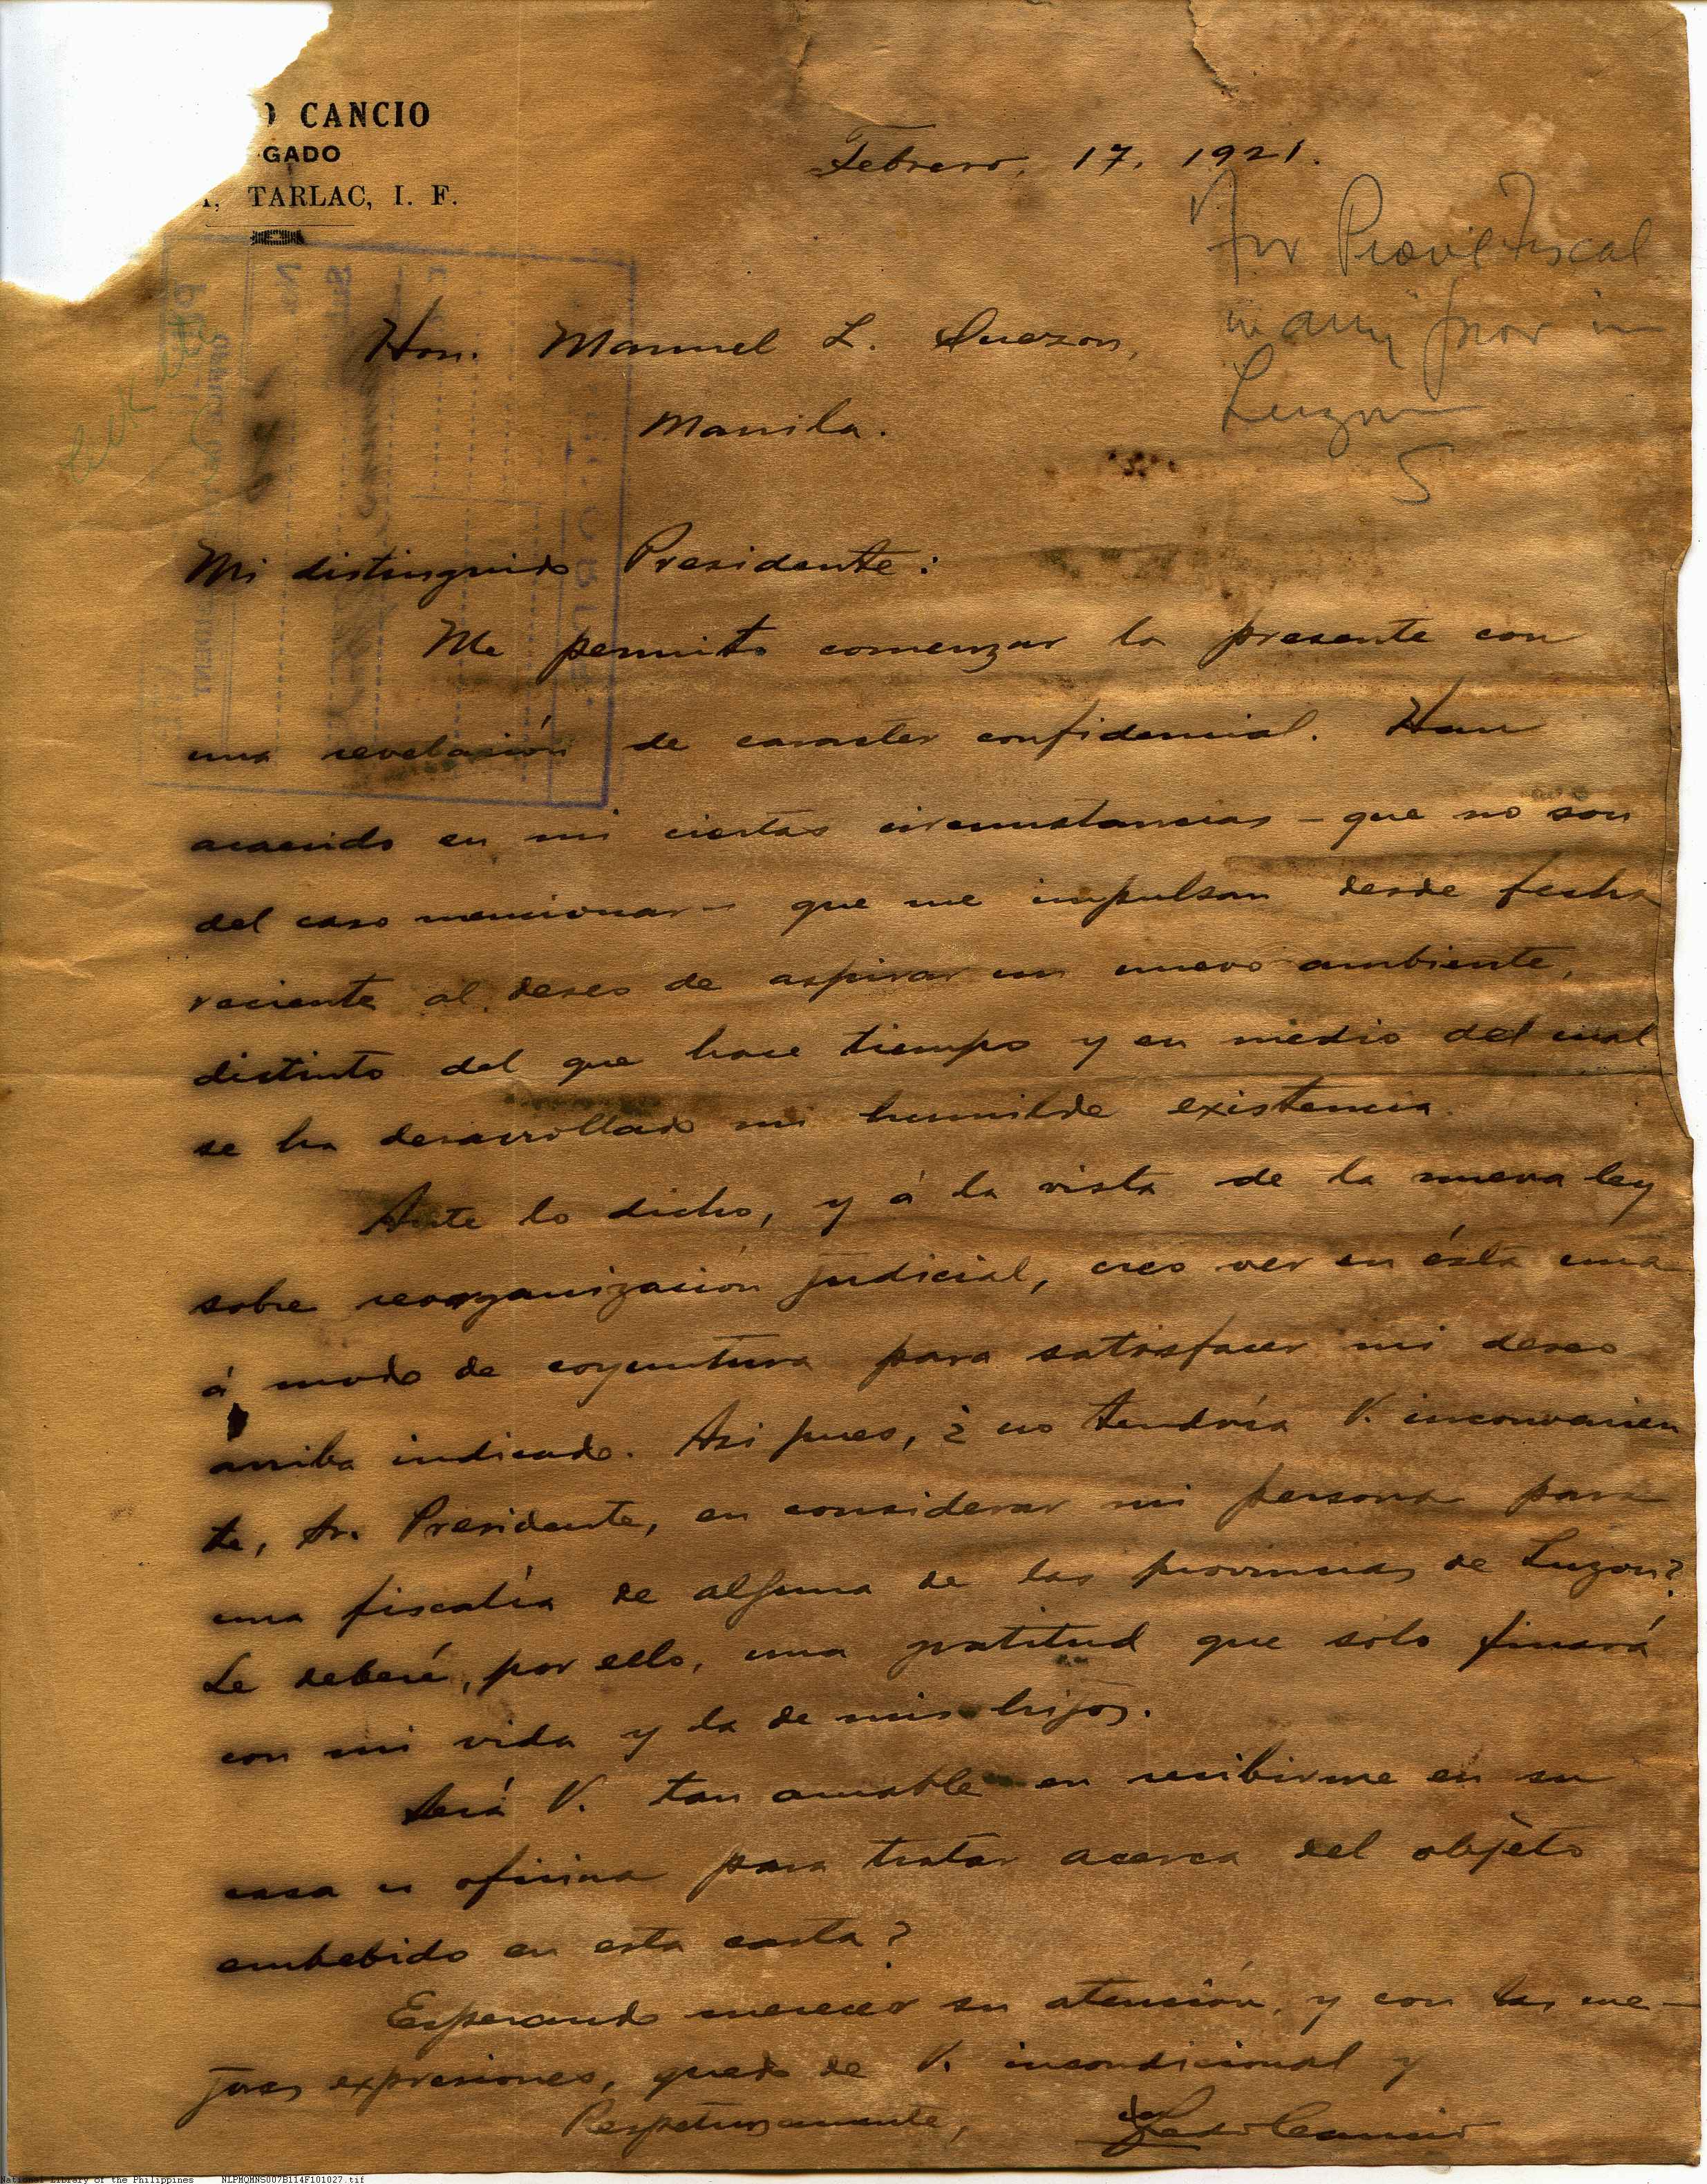 CANCIO
GADO
TARLAC, I. F.
Febrero, 17, 1921.
For Prov'l Fiscal
in any prov in
Luzon
Hon. Manuel L. Quezon,
Manila.
Mi distinguido Presidente:
Me permito comenzar la presente con
una revelación de caracter confidencial. Han
acaecido en mi ciertas circunstancias - que no son
del caso mencionar - que me impulsan desde fecha
reciente al deseo de aspirar un nuevo ambiente,
distinto del que hace tiempo y en medio del cual
se ha desarrollado mi humilde existencia.
Ante lo dicho, y á la vista de la nueva ley
sobre reorganización judicial, creo ver en ésta una
á modo de coyuntura para satisfacer mi deseo
arriba indicado. Asi pues, ¿ no tendría V. inconvenien
te, Sr. Presidente, en considerar mi persona para
una fiscalía de alguna de las provincias de Luzon?
Le deberé, por ello, una gratitud que solo finará
con mi vida y la de mis hijos.
Será V. tan amable en recibirme en su
casa u oficina para tratar acerca del objeto
embebido en esta carta?
Esperando merecer su atención, y con las me-
jores expresiones, quedo de V. incondicional y
Respetuosamente,
Cancio
National Library of the Philippines NLPMQMNS007B114F101027.tif